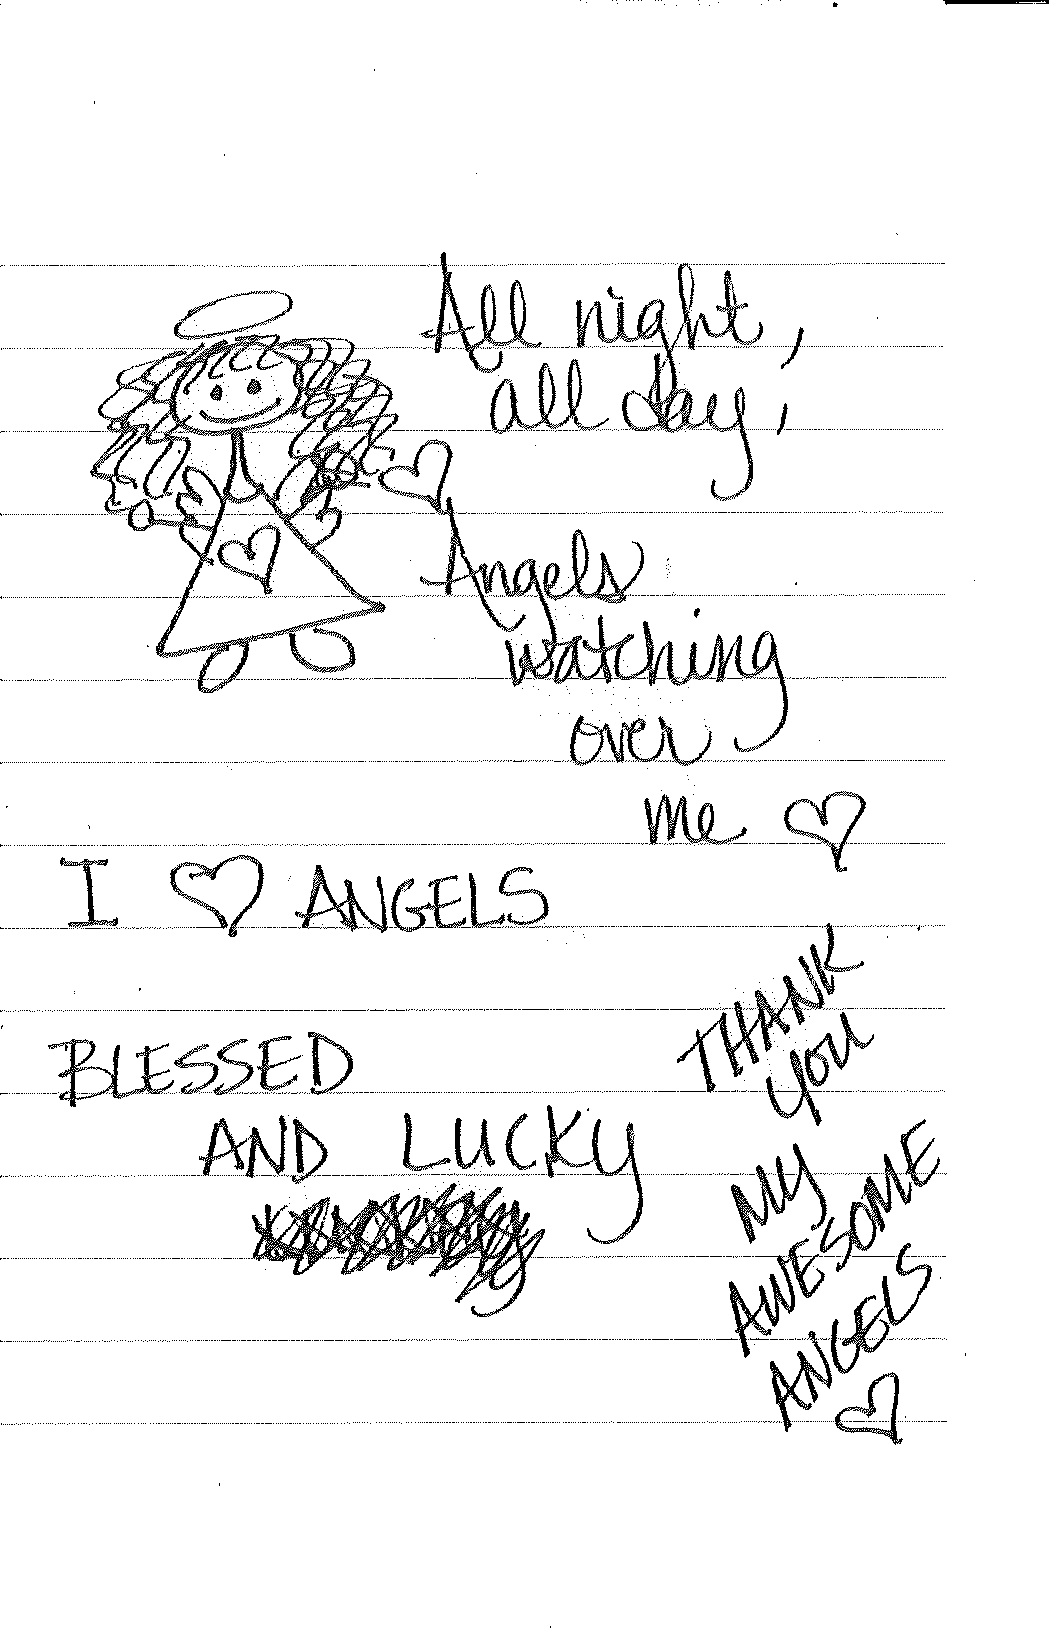 All night,
all day,
Angels
watching
over
me ♡
I ♡ ANGELS
BLESSED
AND LUCKY
THANK
YOU
MY
AWESOME
ANGELS
♡